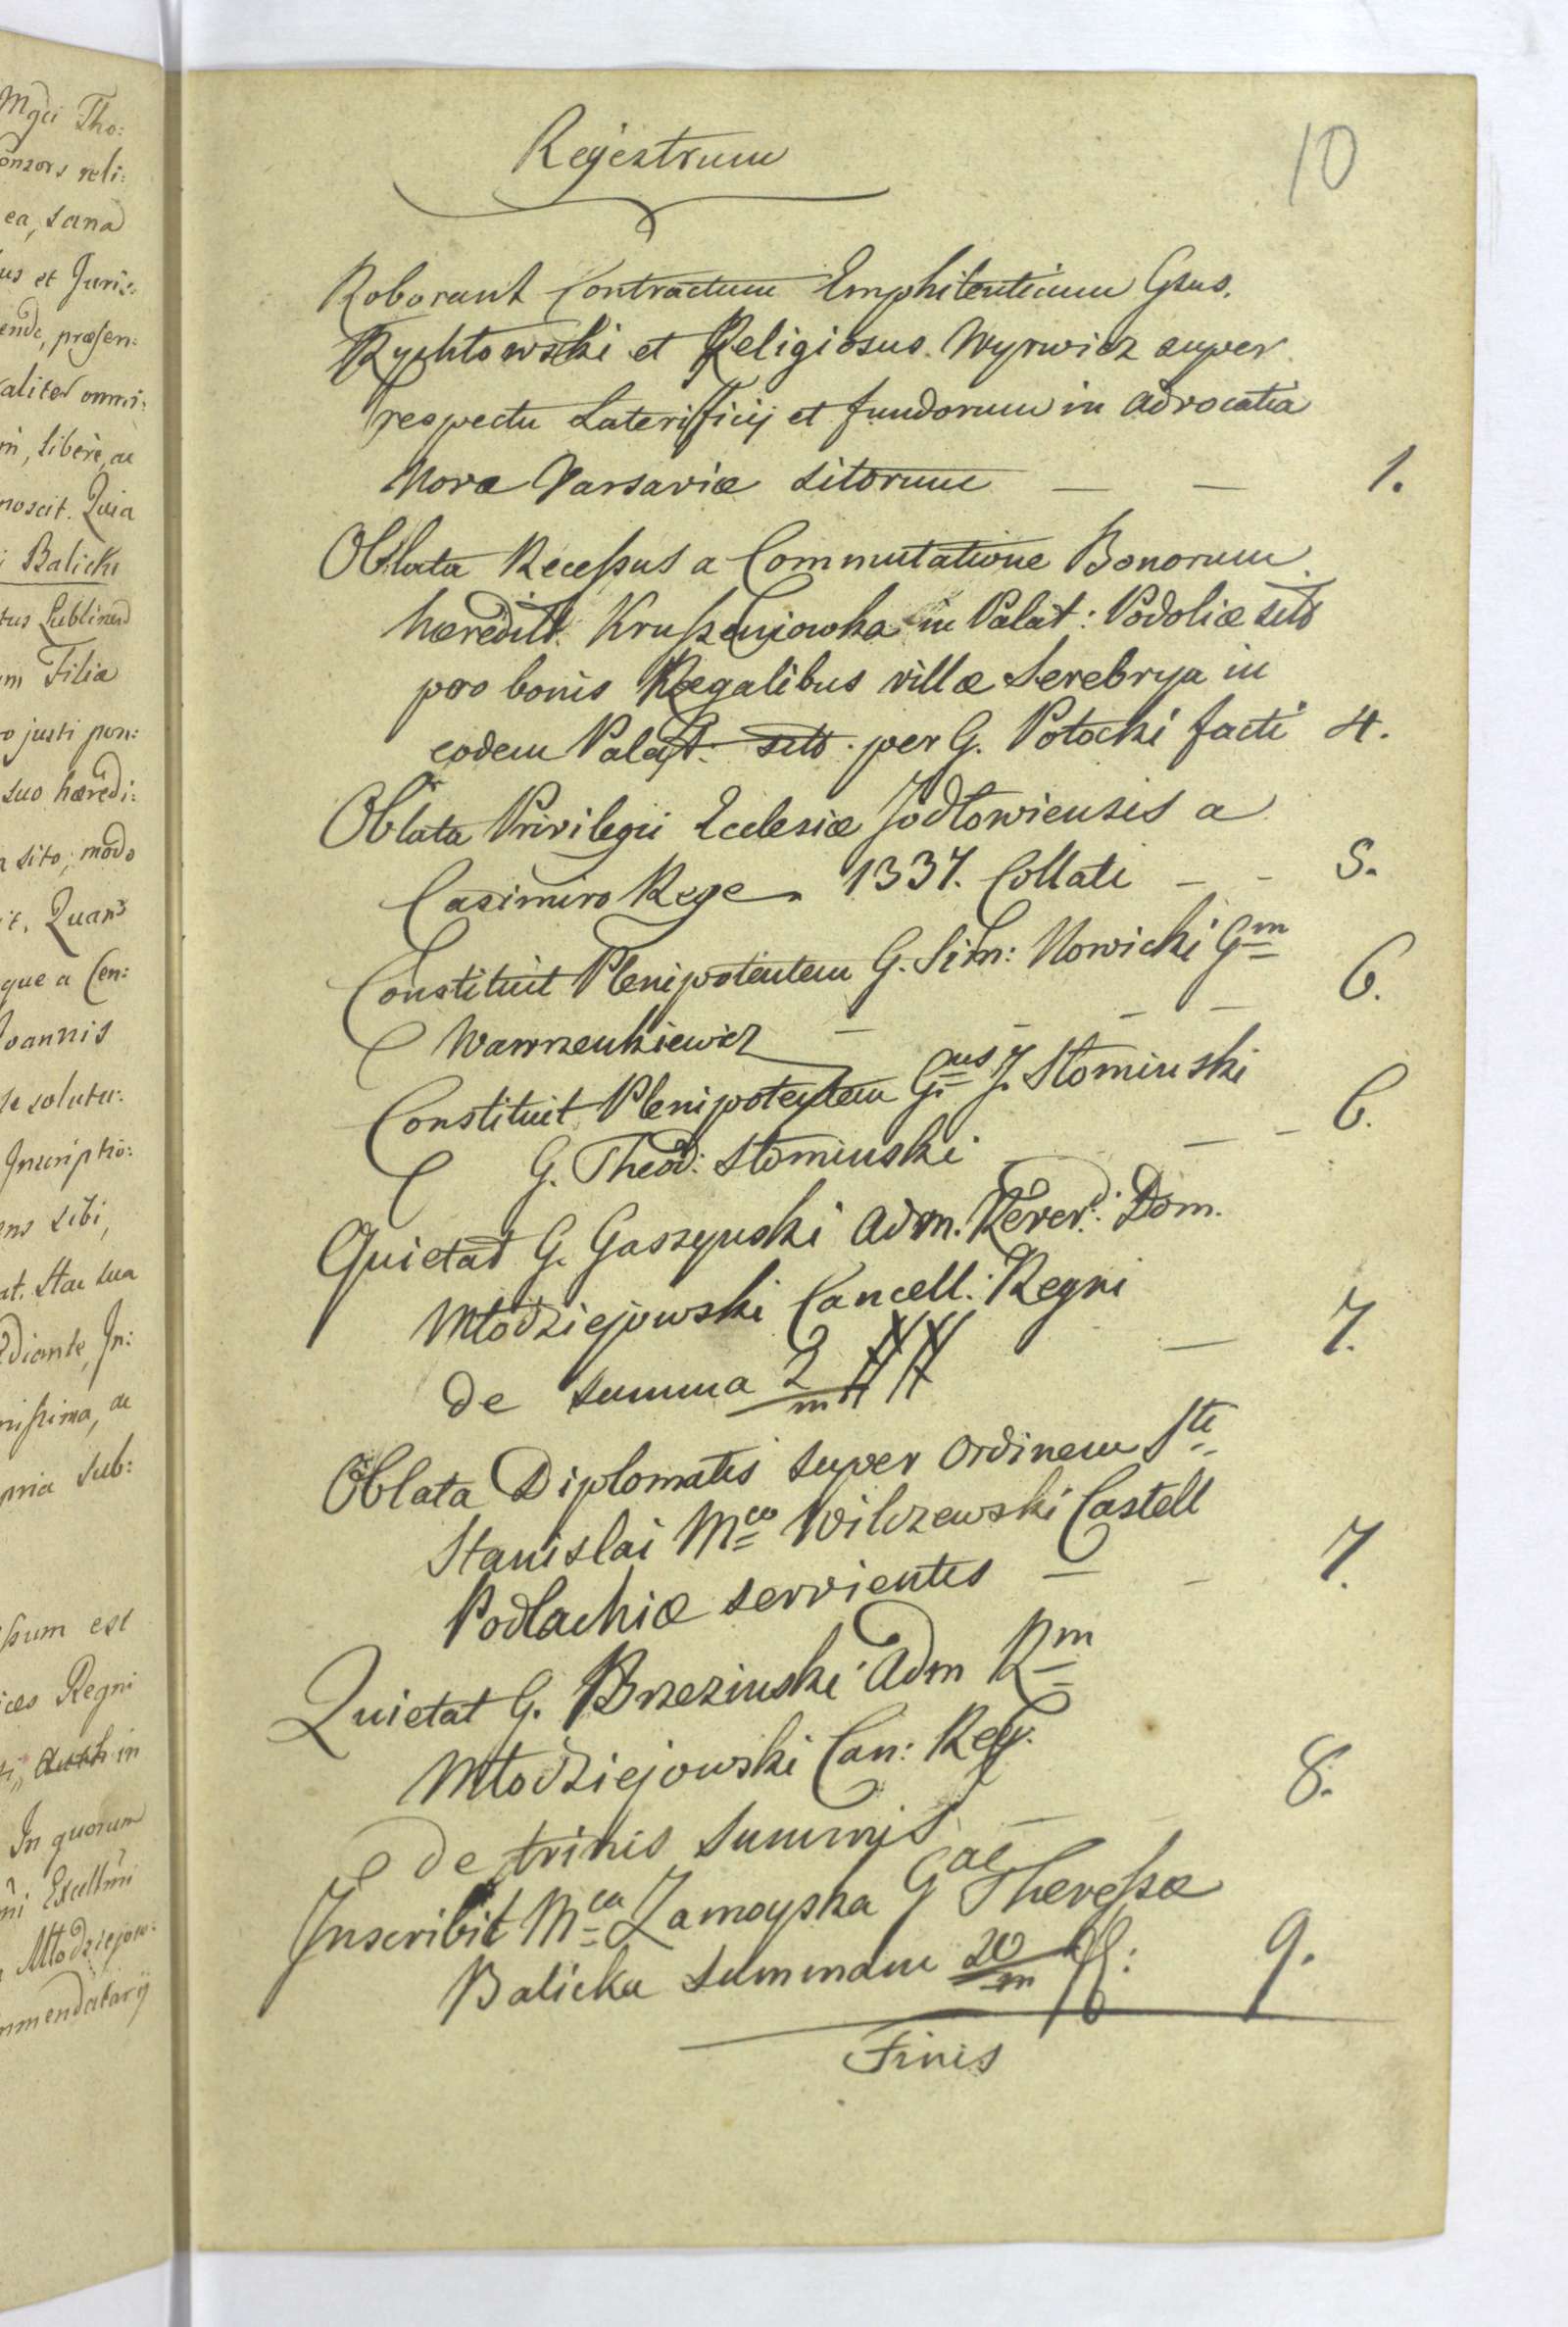 Mgci Tho:
onsors reli:
ea, sana
us et Juris:
ende, præsen:
aliter omni:
m, libere, ac
noscit. Quia
i Balicki
tus Lublinen
m Filia
o justi pon:
suo hæredi:
a sito; modo
it. Quam
que a Cen:
Joannis
se solutu:
Inscriptio:
ens sibi,
at. Stae sua
ediante, In:
nissima, ac
pria sub:
ssum est
ices Regni
in
In quorum
ni Excellmi
Młodziejow:
mmendatarij
10
Regestrum
Roborant Contractum Emphiteuticum Gsus.
Rychłowski et Religiosus Wyrwicz super
respectu Laterifficij et fundorum in advocatia
Nova Varsaviæ sitorum — — 1.
Oblata Recessus a Commutatione Bonorum
hæredit. Kruszeniowka in Palat: Podoliæ sito
pro bonis Regalibus villæ Serebrya in
eodem Palat: sito. per G. Potocki facti 4.
Oblata Privilegii Ecclesiæ Jodłowiensis a
Casimiro Rege 1337. Collati — - 5.
Constituit Plenipotentem G. Sim: Nowicki Gm
Wawrzenkiewicz — — — — 6.
Constituit Plenipotentem Gnus J. Słominski
G. Theod: Słominski — — - 6.
Quietat G. Gaszynski Adm. Rever: Dom.
Młodziejowski Cancell: Regni
de summa 2/m ## — 7.
Oblata Diplomatis super Ordinem Sti
Stanislai Mco Wilczewski Castell
Podlachiæ servientis — - 7.
Quietat G. Brzezinski Adm Rm
Młodziejowski Can: Reg.
de trinis summis — - 8.
Inscribit Mca Zamoyska Gae Theressæ
Balicka summam 20/m ff: 9.
Finis